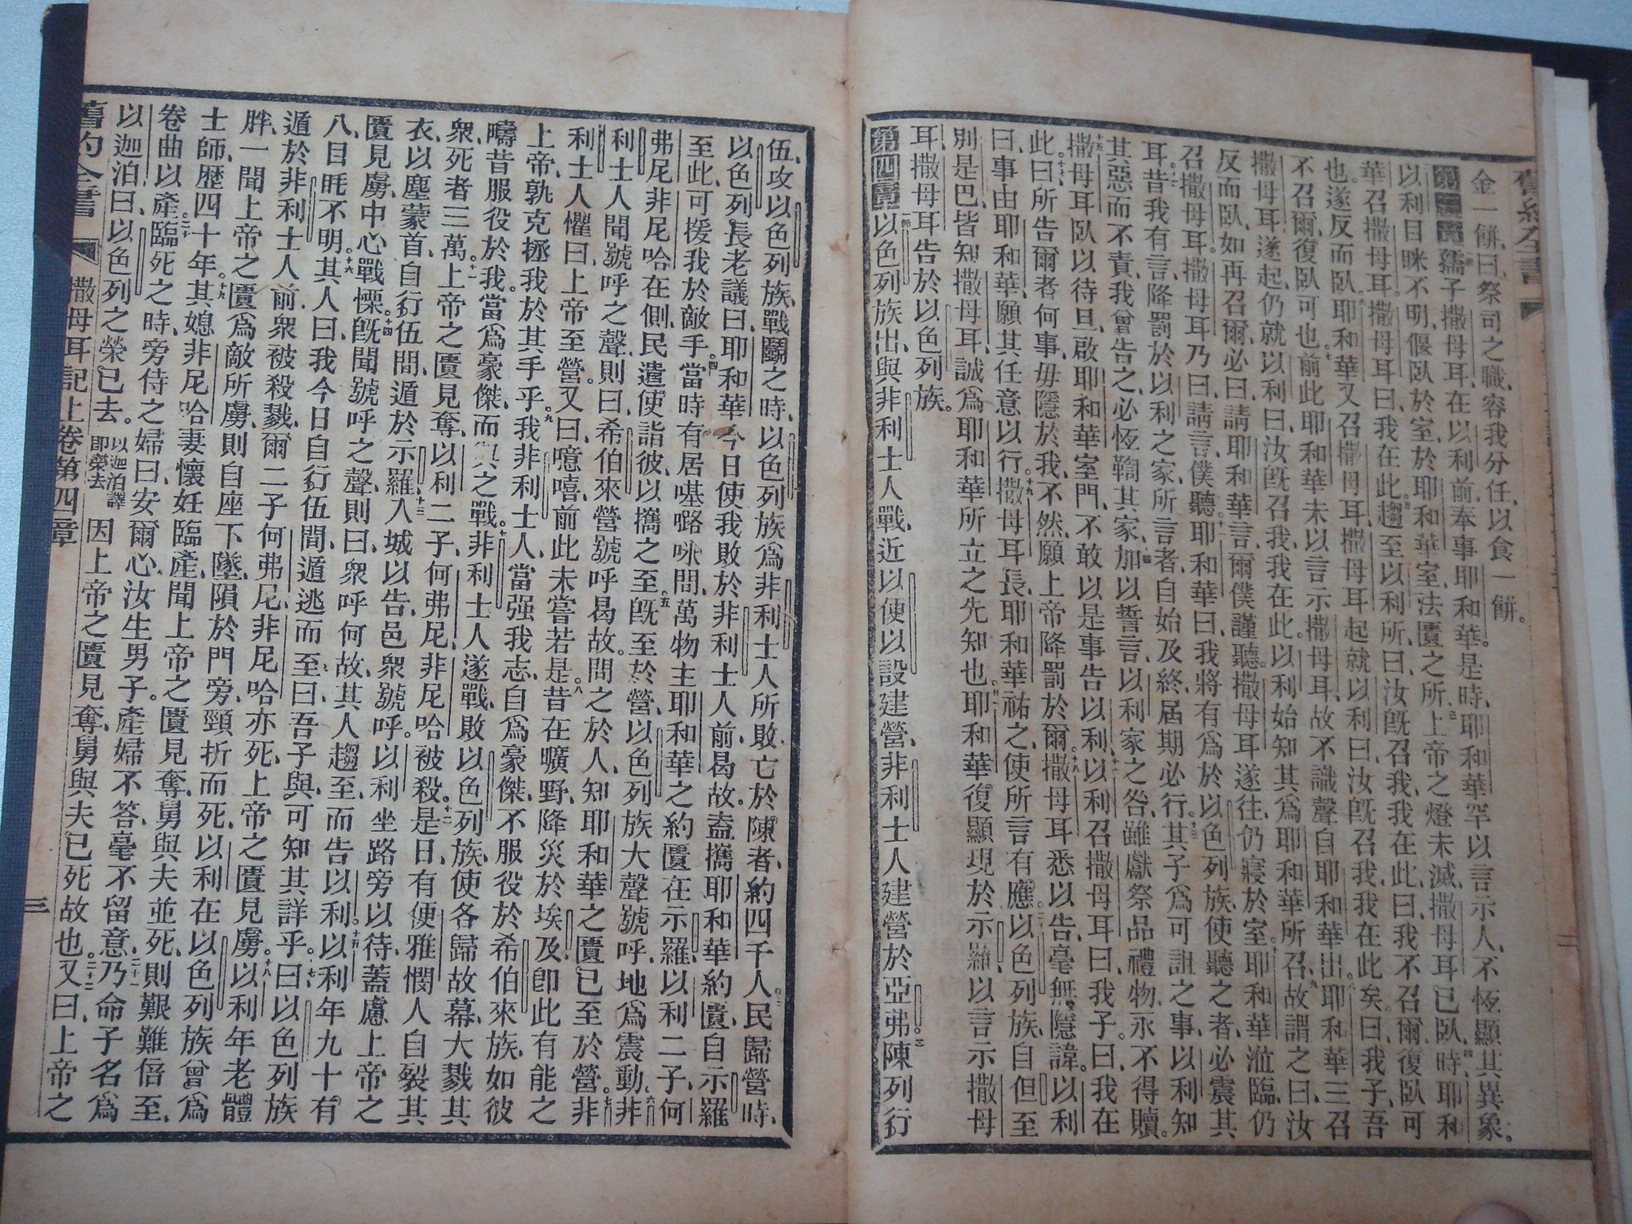 舊約全書 二
金一餅、曰、祭司之職、容我分任、以食一餅。
第三章孺子撒母耳、在以利前奉事耶和華。是時、耶和華罕以言示人、不恆顯其異象。
以利目眯不明、偃臥於室、於耶和華室、法匱之所、上帝之燈未滅、撒母耳已臥時、耶和
華召撒母耳。撒母耳曰、我在此。趨至以利所、曰、汝既召我、我在此、曰、我不召爾、復臥可
也、遂反而臥。耶和華又召撒母耳、撒母耳起就以利曰、汝既召我、我在此矣、曰、我子、吾
不召爾、復臥可也。前此耶和華未以言示撒母耳、故不識聲自耶和華出。耶和華三召
撒母耳、遂起、仍就以利曰、汝既召我、我在此。以利始知其爲耶和華所召、故謂之曰、汝
反而臥、如再召爾、必曰、請耶和華言、爾僕謹聽。撒母耳遂往、仍寢於室。耶和華涖臨、仍
召撒母耳。撒母耳乃曰、請言、僕聽。耶和華曰、我將有爲於以色列族、使聽之者、必震其
耳。昔我有言、降罰於以利之家、所言者自始及終、屆期必行。其子爲可詛之事、以利知
其惡而不責、我曾告之、必恆鞫其家、加以誓言、以利家之咎、雖獻祭品禮物、永不得贖。
撒母耳臥以待旦、啟耶和華室門、不敢以是事告以利。以利召撒母耳曰、我子、曰、我在
此。曰、所告爾者何事、毋隱於我、不然、願上帝降罰於爾。撒母耳悉以告、毫無隱諱。以利
曰、事由耶和華、願其任意以行。撒母耳長、耶和華祐之、使所言有應。以色列族、自但至
別是巴、皆知撒母耳、誠爲耶和華所立之先知也。耶和華復顯現於示羅、以言示撒母
耳、撒母耳告於以色列族。
第四章以色列族出、與非利士人戰、近以便以設建營、非利士人建營於亞弗、陳列行
伍、攻以色列族、戰鬭之時、以色列族爲非利士人所敗、亡於陳者、約四千人。民歸營時、
以色列長老議曰、耶和華今日使我敗於非利士人前、曷故、盍攜耶和華約匱、自示羅
至此、可援我於敵手。當時有居𠼻㗔咪間、萬物主耶和華之約匱在示羅、以利二子、何
弗尼非尼哈在側、民遣使詣彼、以攜之至。既至於營、以色列族大聲號呼、地爲震動。非
利士人聞號呼之聲、則曰、希伯來營號呼、曷故、問之於人、知耶和華之匱已至於營。非
利士人懼曰、上帝至營。又曰、噫嘻、前此未嘗若是。昔在曠野、降災於埃及、卽此有能之
上帝、孰克拯我於其手乎。我非利士人、當强我志、自爲豪傑、不服役於希伯來族、如彼
疇昔服役於我、當爲豪傑而與之戰。非利士人遂戰、敗以色列族、使各歸故幕、大戮其
衆、死者三萬。上帝之匱見奪、以利二子、何弗尼非尼哈被殺。是日有便雅憫人、自裂其
衣、以塵蒙首、自行伍間、遁於示羅、入城以告、邑衆號呼。以利坐路旁以待、蓋慮上帝之
匱見虜、中心戰慄。既聞號呼之聲、則曰、衆呼何故、其人趨至而告以利。以利年九十有
八、目眊不明。其人曰、我今日自行伍間、遁逃而至、曰、吾子與、可知其詳乎。曰、以色列族
遁於非利士人前、衆被殺戮、爾二子何弗尼、非尼哈亦死、上帝之匱見虜。以利年老體
胖、一聞上帝之匱爲敵所虜、則自座下墜、隕於門旁、頸折而死、以利在以色列族曾爲
士師、歷四十年。其媳非尼哈妻懷妊臨產、聞上帝之匱見奪、舅與夫並死、則艱難倍至、
卷曲以產、臨死之時、旁侍之婦曰、安爾心、汝生男子。產婦不答、毫不留意、乃命子名爲
以迦泊、曰、以色列之榮已去。以迦泊譯卽榮去因上帝之匱見奪、舅與夫已死故也。又曰、上帝之
舊約全書 撒母耳記上卷第四章 三